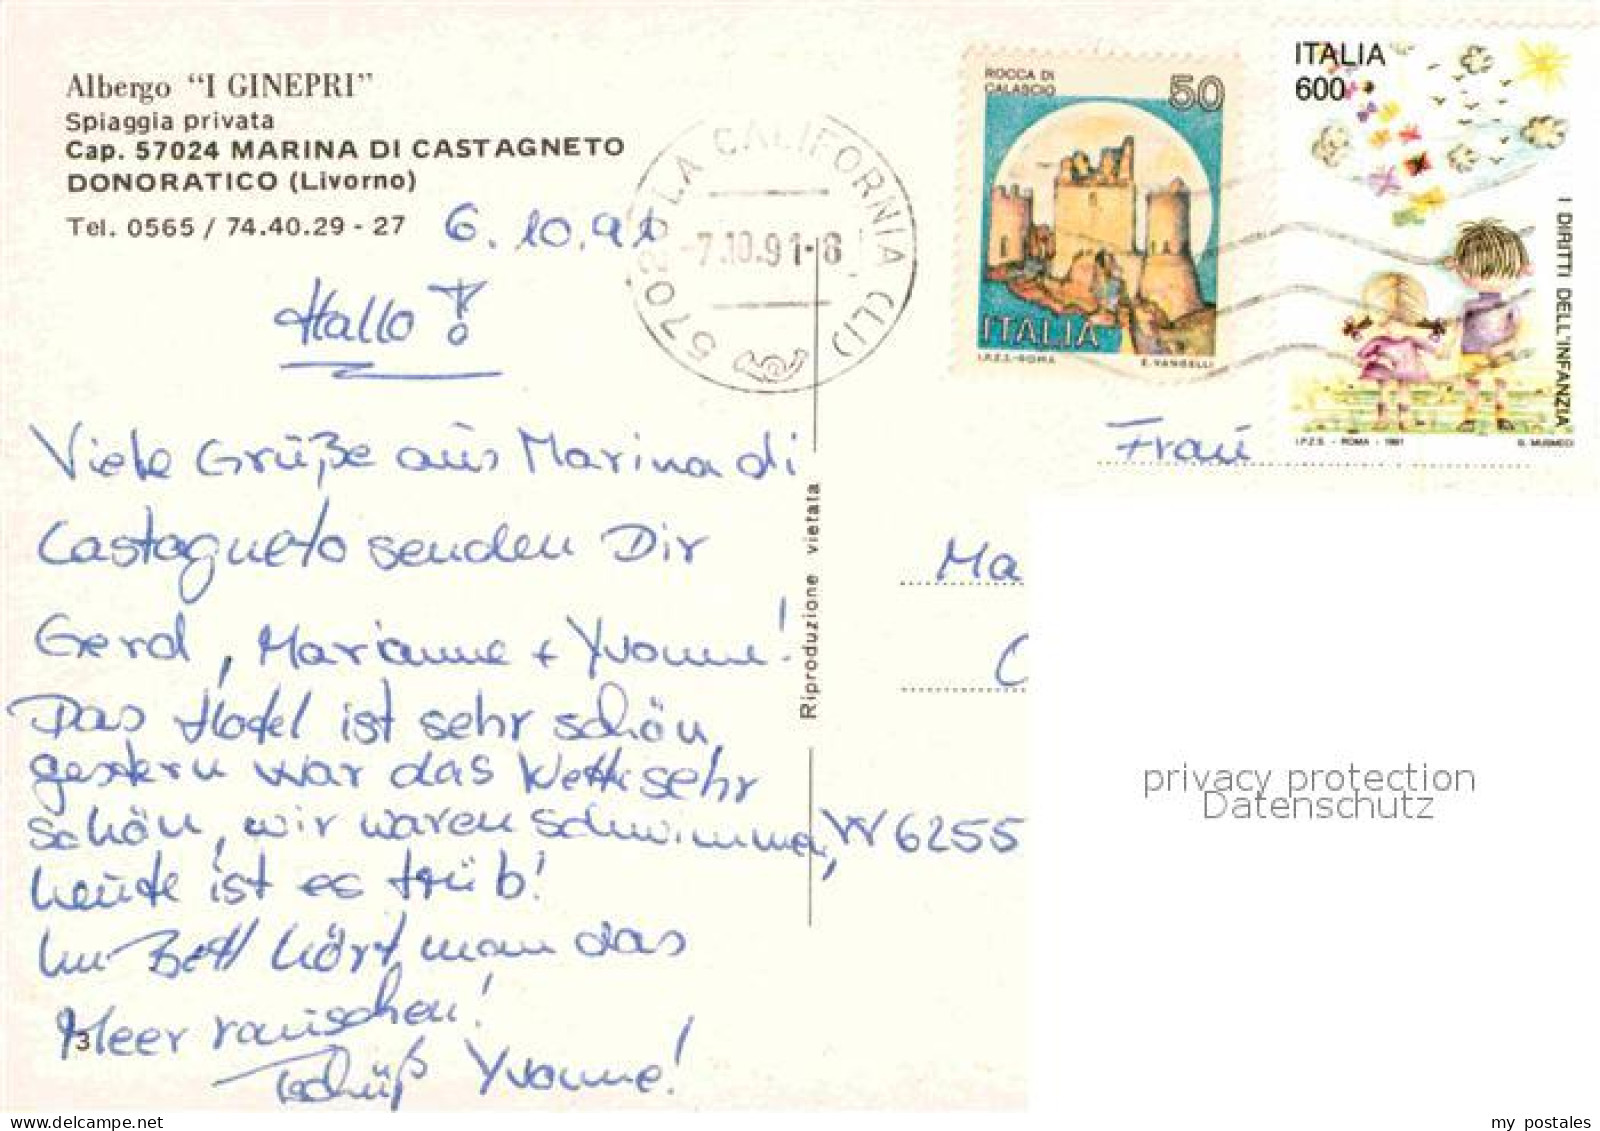 Albergo "I GINEPRI"
Spiaggia privata
Cap. 57024 MARINA DI CASTAGNETO
DONORATICO (Livorno)
Tel. 0565 / 74.40.29 - 27
6.10.91
Hallo!
Viele Grüße aus Marina di
Castagneto senden Dir
Gerd, Marianne + Yvonne!
Das Hotel ist sehr schön,
gestern war das Wetter sehr
schön, wir waren schwimmen,
heute ist es trüb!
Im Bett hört man das
Meer rauschen!
Tschüß Yvonne!
3
Riproduzione vietata
57020 LA CALIFORNIA (LI)
-7.10.91-18
ROCCA DI
CALASCIO
50
ITALIA
I.P.Z.S.-ROMA E. VANGELLI
ITALIA
600
I DIRITTI DELL'INFANZIA
I.P.Z.S. - ROMA - 1991 G. MUSMECI
Frau
Ma
C
W 6255
privacy protection
Datenschutz
www.delcampe.net
my_postales